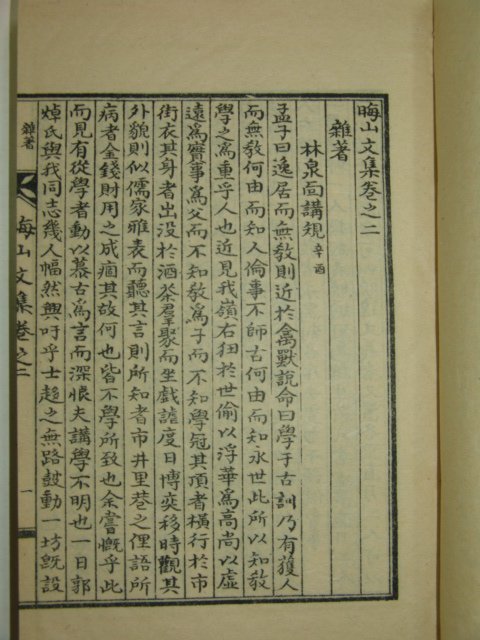 晦山文集卷之二
雜著
林泉面講規 辛酉
孟子曰逸居而無敎則近於禽獸說命曰學于古訓乃有獲人
而無敎何由而知人倫事不師古何由而知永世此所以知敎
學之爲重乎人也近見我嶺右狃於世偸以浮華爲高尙以虛
遠爲實事爲父而不知敎爲子而不知學冠其頂者橫行於市
街衣其身者出沒於酒茶羣聚而坐戱謔度日博奕移時觀其
外貌則似儒家雅表而聽其言則所知者市井里巷之俚語所
病者金錢財用之成痼其故何也皆不學所致也余嘗慨乎此
而見有從學者動以慕古爲言而深恨夫講學不明也一日郭
焯氏與我同志幾人幅然興吁乎士趍之無路鼓動一坊旣設
雜著
晦山文集卷之二
一